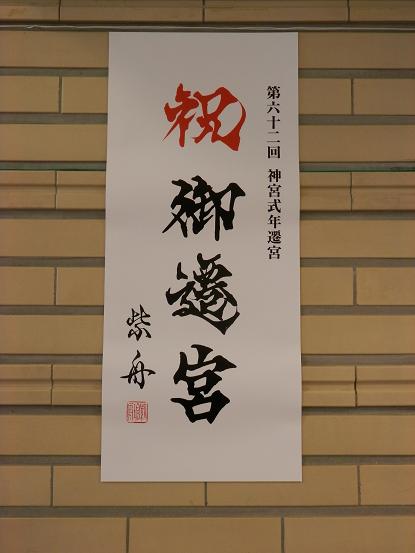 第六十二回 神宮式年遷宮
祝御遷宮
紫舟